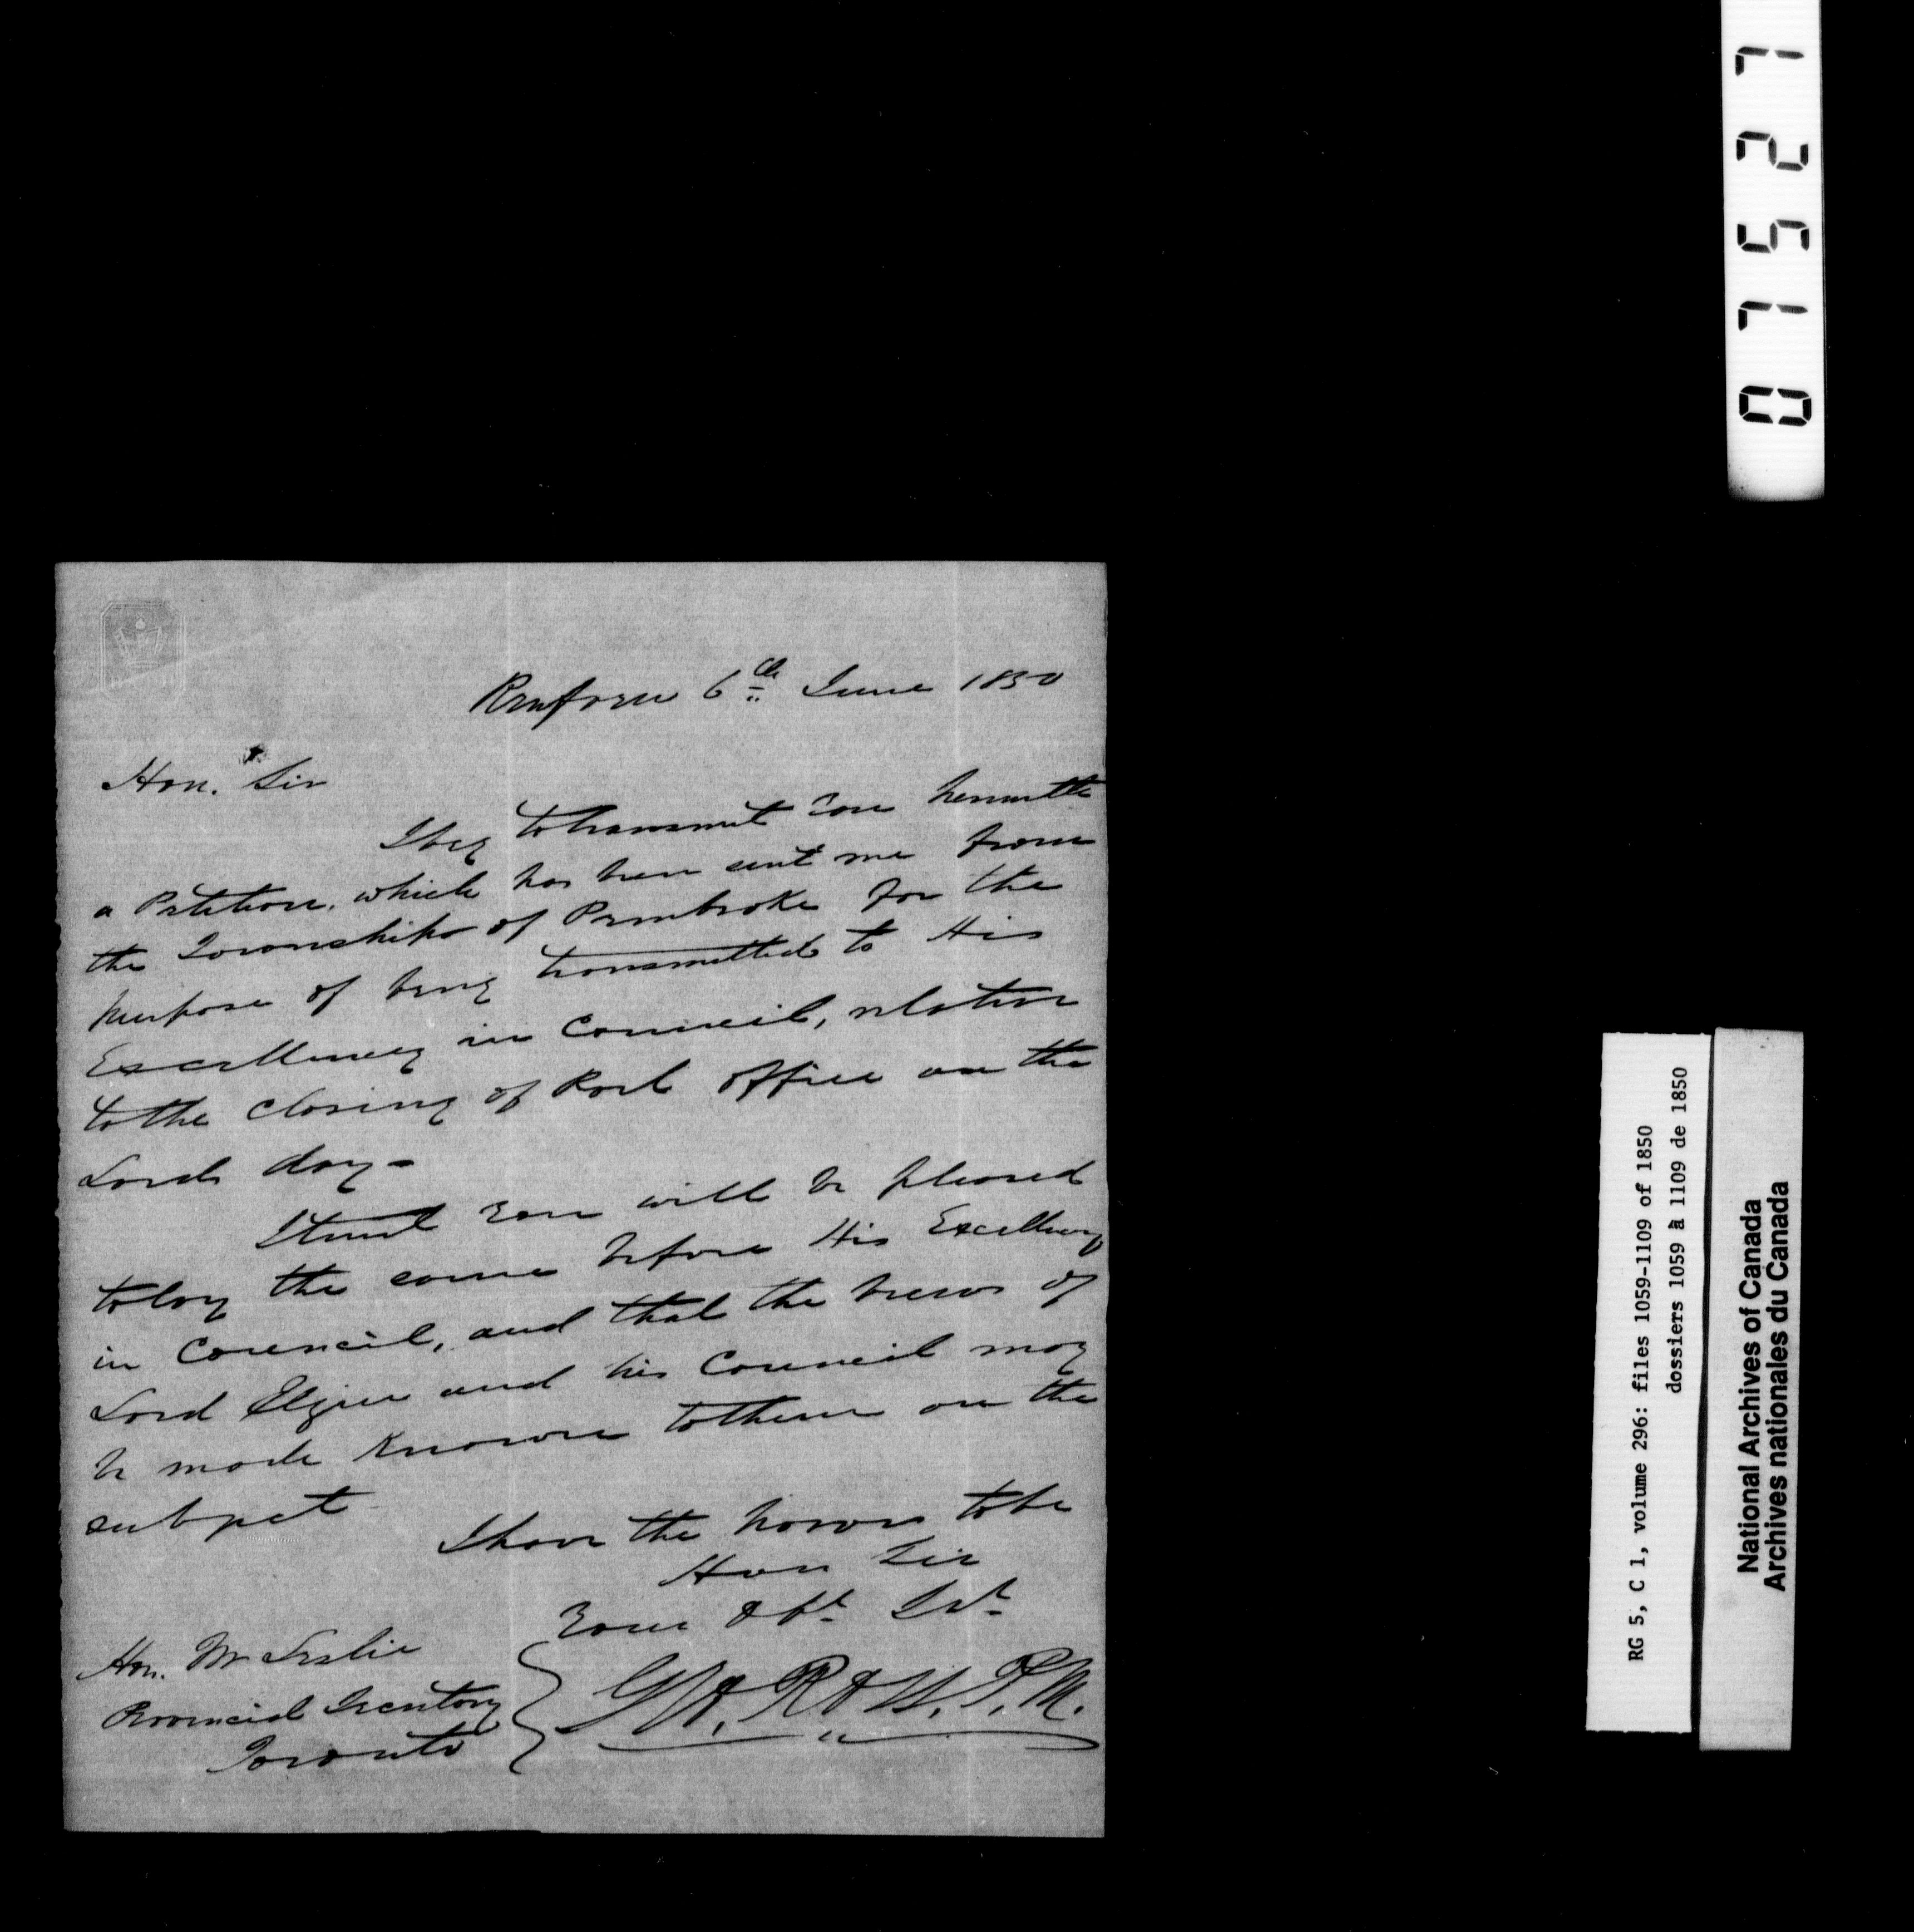 Renfrew 6th June 1850
Hon. Sir
I beg to transmit you herewith
a Petition, which has been sent me from
the Township of Pembroke for the
purpose of being transmitted to His
Excellency in Council, relative
to the closing of Post office on the
Lords day-
I trust you will be pleased
to lay the same before His Excellency
in Council, and that the views of
Lord Elgin and his Council may
be made known to them on the
subject
I have the honor to be
Hon Sir
Your Obt. Svt.
Hon. Mr Leslie
Provincial Secretary
Toronto
P.M.
07527
RG 5, C 1, volume 296: files 1059-1109 of 1850
dossiers 1059 à 1109 de 1850
National Archives of Canada
Archives nationales du Canada